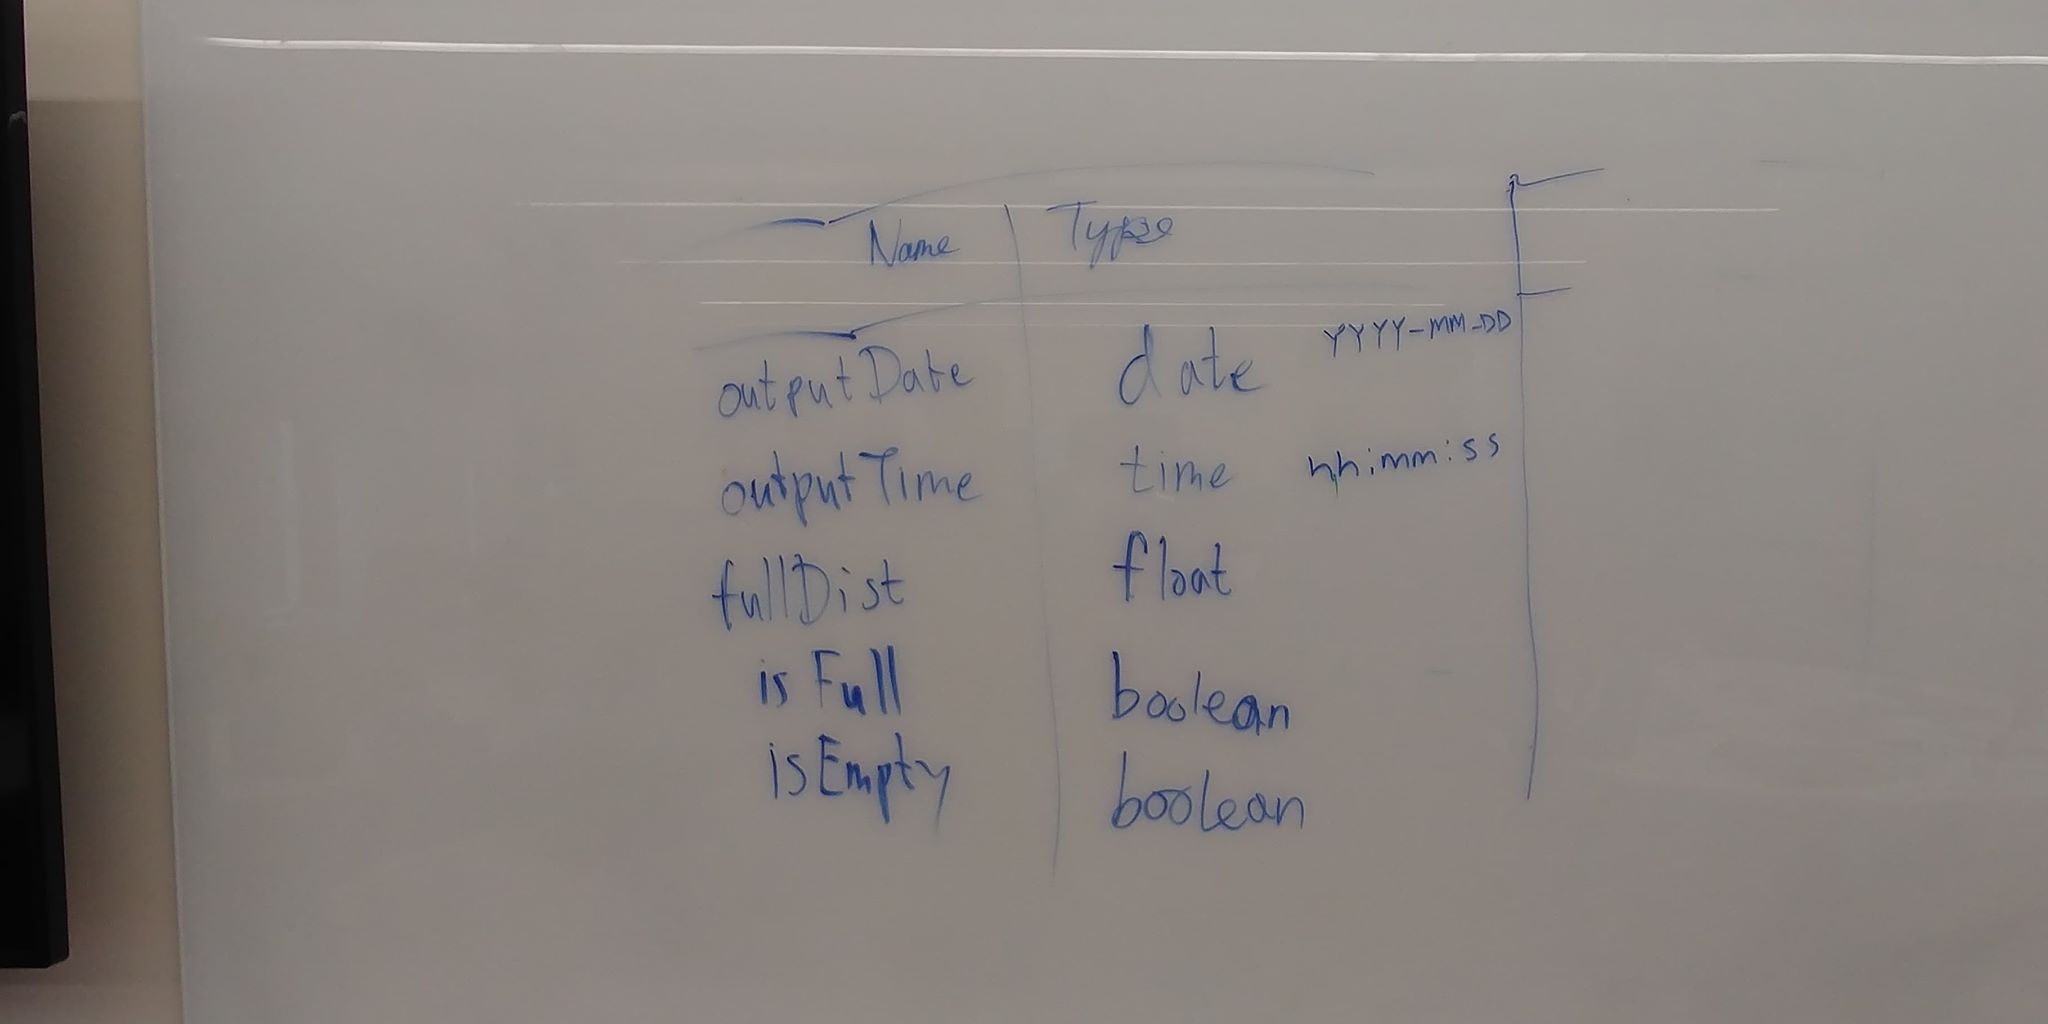 Name Type
outputDate date YYYY-MM-DD
outputTime time hh:mm:ss
fullDist float
isFull boolean
isEmpty boolean